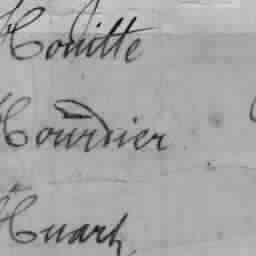 Houitte
Hourdier
Huart